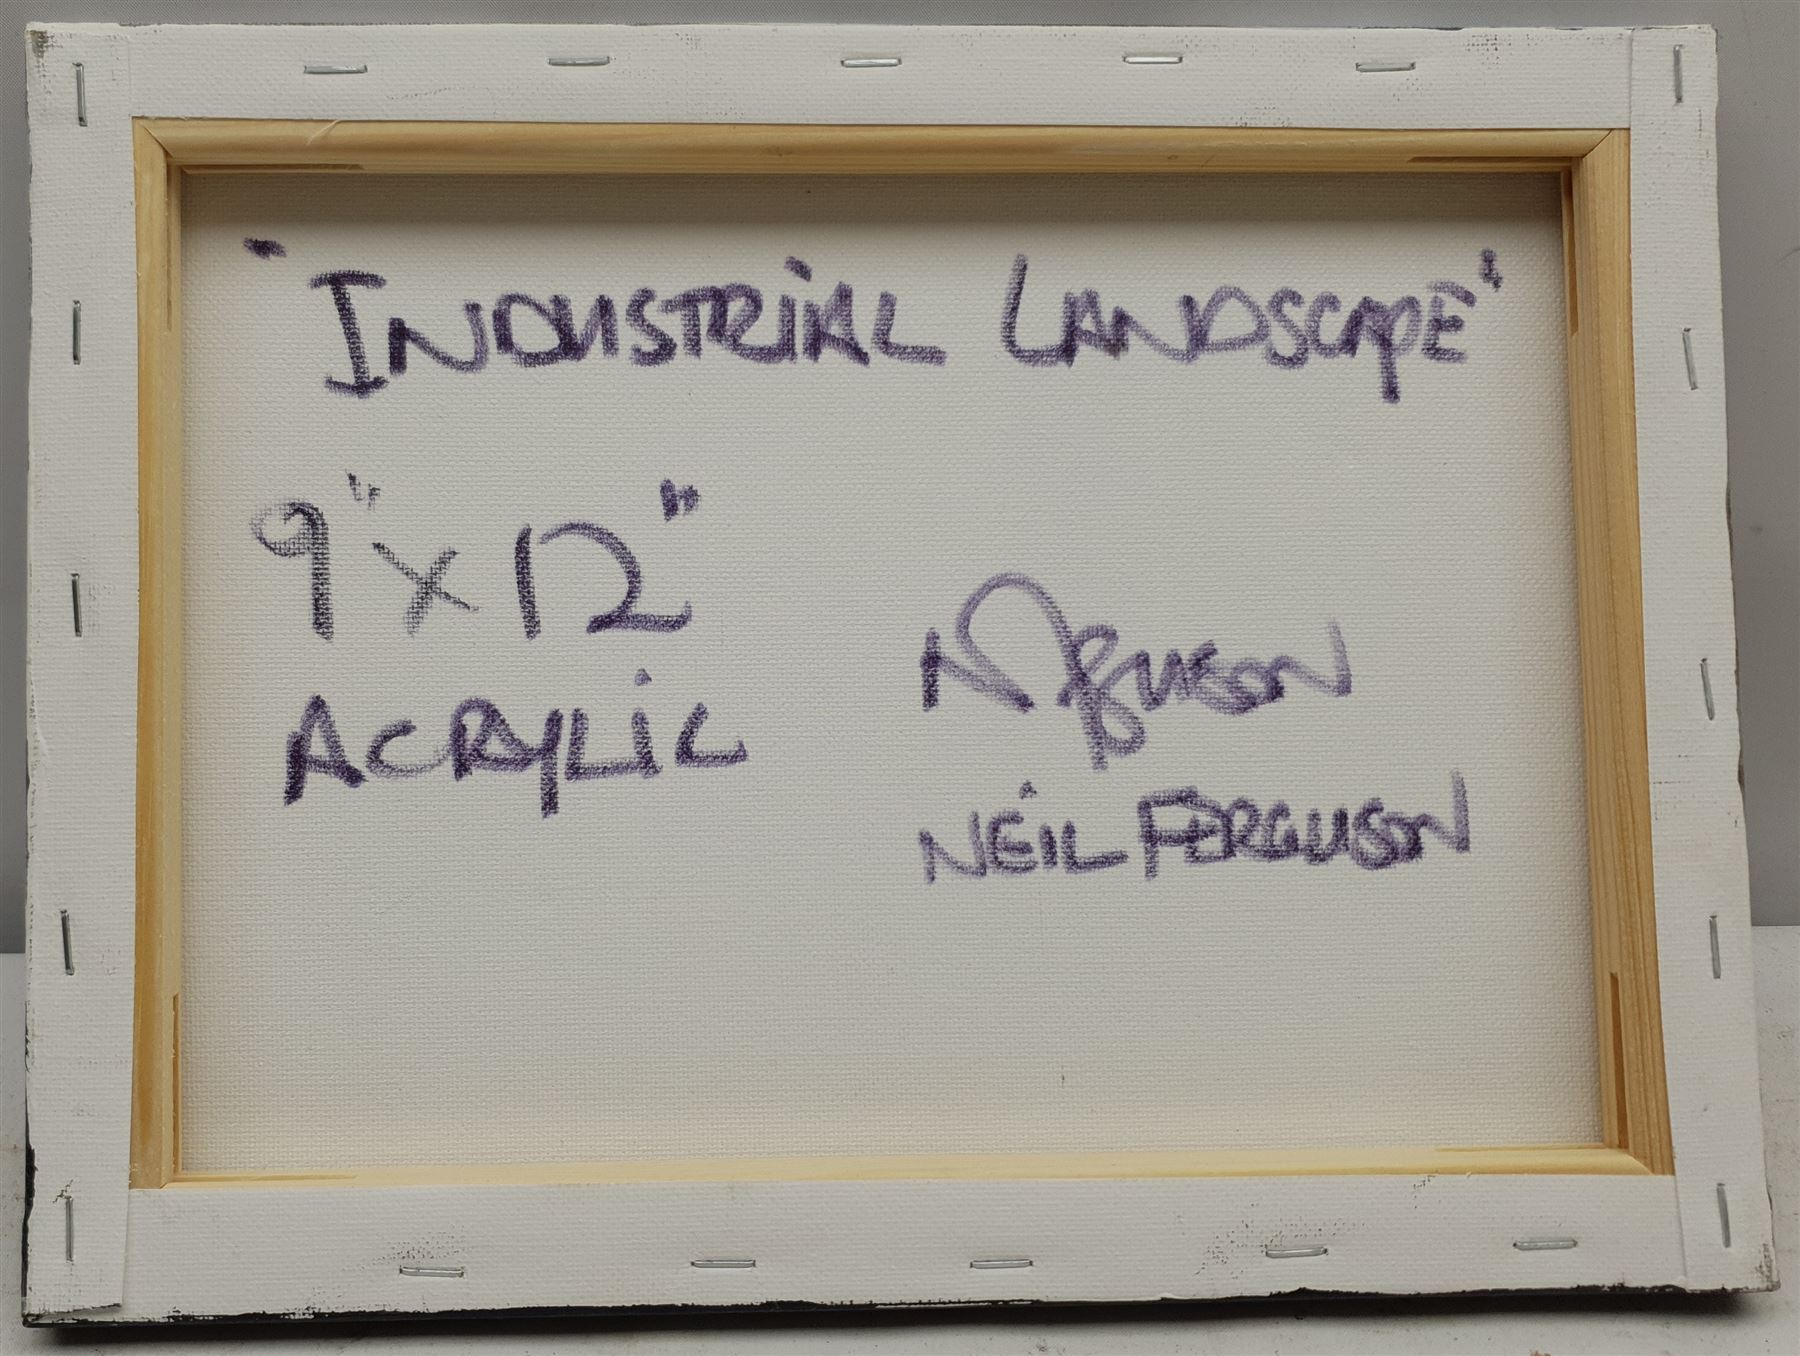 "INDUSTRIAL LANDSCAPE"
9" x 12"
ACRYLIC
N Ferguson
NEIL FERGUSON